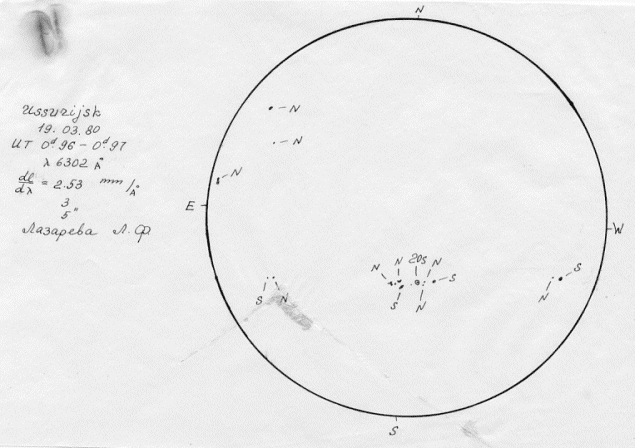 Ussurijsk
19.03.80
UT 0ᵈ.96 – 0ᵈ.97
λ 6302 Å
dl/dλ = 2.53 mm/Å
3
5"
Лазарева Л.Ф
N
N
N
N
E
W
N N 20S N S
N S
S N
S N
S